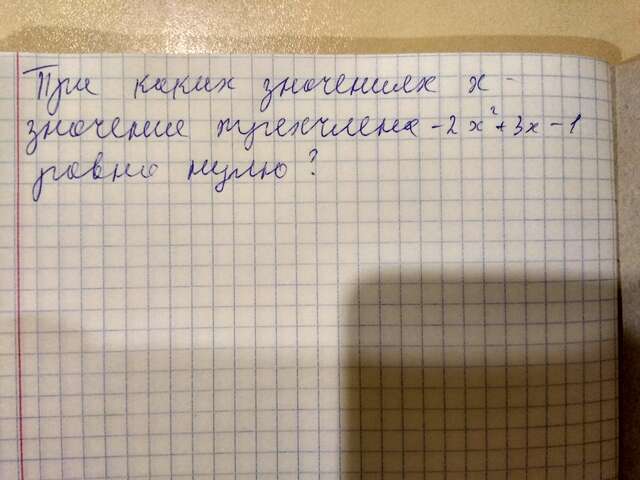 При каких значениях x -
значение трехчлена -2x²+3x-1
равно нулю?